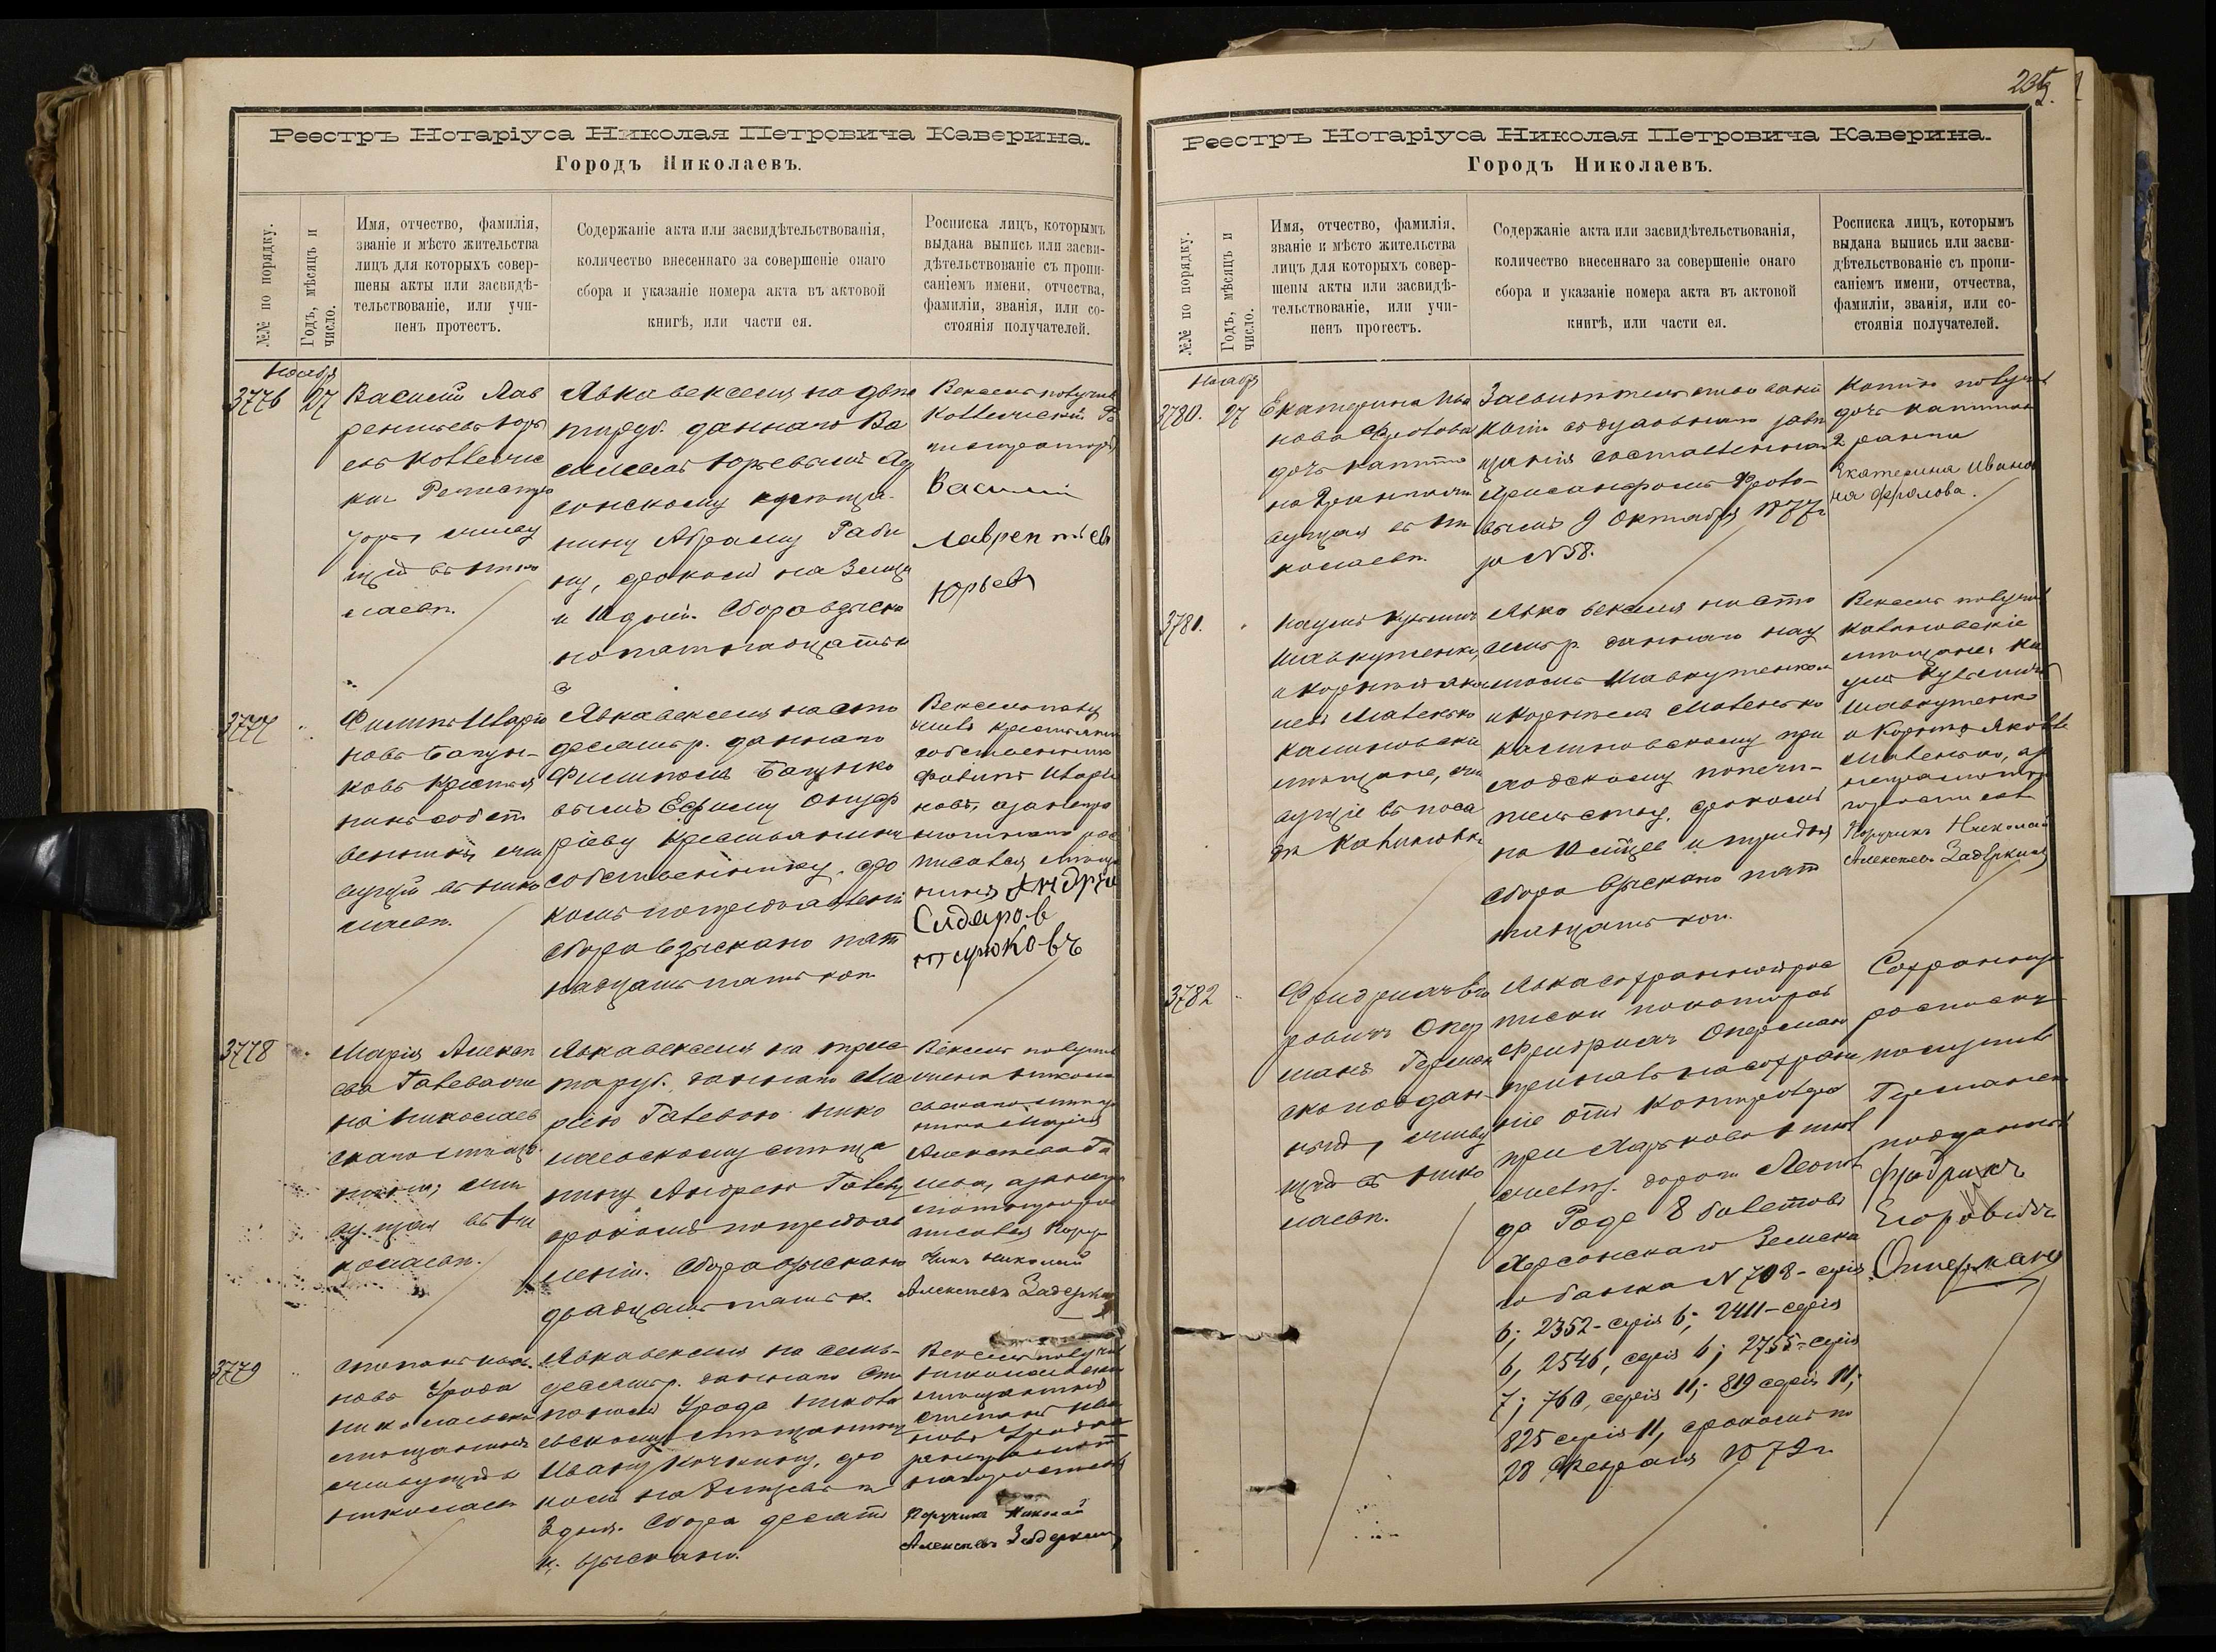 Реестръ Нотаріуса Николая Петровича Каверина.
Городъ Николаевъ.
№№ по порядку.
Годъ, мѣсяцъ и
число.
Имя, отчество, фамилія,
званіе и мѣсто жительства
лицъ для которыхъ совер-
шены акты или засвидѣ-
тельствованіе, или учи-
ненъ протестъ.
Содержаніе акта или засвидѣтельствованія,
количество внесеннаго за совершеніе онаго
сбора и указаніе номера акта въ актовой
книгѣ, или части ея.
Росписка лицъ, которымъ
выдана выпись или засви-
дѣтельствованіе съ пропи-
саніемъ имени, отчества,
фамиліи, званія, или со-
стоянія получателей.
Ноября
3776
27
Василій Лав
рентьевъ Юрь
евъ Коллежс
кій Регистра
торъ живу
щій въ Нико
лаевѣ.
Явка векселя на двѣ
даннаго Ва
силіемъ Юрьевымъ
сонскому
нину Абраму Раби
ну, срокомъ на 3 мѣсяца
и 10 дней. Сбора взыска
но пятнадцать к
Вексель получилъ
Коллежскій Ре
гистраторъ
Василій
Лаврентіевъ
Юрьевъ
3777
Филиппъ Иларіо
новъ
ковъ Крестья
нинъ собст
венникъ жи
вущій въ Нико
лаевѣ.
Явка векселя на сто
десять р. даннаго
Филиппомъ
вымъ Ефиму Онуф
ріеву Крестьянину
собственнику. сро
комъ по предъявленіи
сбора взыскано пят
надцать коп.
Вексель полу
чилъ крестьянинъ
собственникъ
Филипъ Иларіо
новъ, а за негра
мотнаго рос
писался Мѣща
нинъ Андрѣй
Сидаров
3778
Марія Алексѣ
ева
на Николаев
скаго мѣща
нина, жи
вущая въ Ни
колаевѣ.
Явка векселя на трис
та руб. даннаго Ма
ріею
Нико
лаевскому мѣща
нину Андрею
срокомъ по предъяв
леніи. Сбора взыскано
двадцать пять к.
Вексель получила
жена Николаевскаго
мѣщанина Марія
Алексѣева
писался Пору
чикъ Николай
Алексѣевъ Задеркинъ
3779
Степанъ Ива
новъ Урода
Николаевскій
мѣщанинъ
живущій въ
Николаевѣ
Явка векселя на семь-
десять р. даннаго Сте
паномъ Урода Никола
евскому мѣщанину
Ивану
, сро
комъ на
3 дня. Сбора десять
к. взыскано.
Вексель получилъ
Николаевскій
мѣщанинъ
Степанъ Ива
новъ Урода
Поручикъ Николай
Алексѣевъ Задеркинъ
235
Реестръ Нотаріуса Николая Петровича Каверина.
Городъ Николаевъ.
№№ по порядку.
Годъ, мѣсяцъ и
число.
Имя, отчество, фамилія,
званіе и мѣсто жительства
лицъ для которыхъ совер-
шены акты или засвидѣ-
тельствованіе, или учи-
ненъ протестъ.
Содержаніе акта или засвидѣтельствованія,
количество внесеннаго за совершеніе онаго
сбора и указаніе номера акта въ актовой
книгѣ, или части ея.
Росписка лицъ, которымъ
выдана выпись или засви-
дѣтельствованіе съ пропи-
саніемъ имени, отчества,
фамиліи, званія, или со-
стоянія получателей.
Ноября
3780.
27
Екатерина Ива
нова Фролова
дочь капита
на 2 ранга жи
вущая въ Ни
колаевѣ.
Засвидѣтельствованіе
копіи съ духовнаго завѣ
щанія составленнаго
Фроло-
вымъ 9 Октября 1877 г
за № 58.
Копію получила
дочь капитана
2 ранга
Екатерина Иванов
на Фролова.
3781.
Наумъ Кузьмичъ
Шавкутенко,
и Корнѣй Яков
левъ
Калиновскіе
мѣщане, жи
вущіе въ поса
дѣ Калиновкѣ
Явка векселя на сто
семь р. даннаго Нау
момъ Шавкутенкомъ
и Корнѣемъ
Калиновскому при
ходскому попечи-
тельству, срокомъ
на 10 мѣсяцевъ и три дня
сбора взыскано пят
надцать коп.
Вексель получили
Калиновскіе
мѣщане: На
умъ Кузьмичъ
Шавкутенко
и Корнѣй Яковлевъ
Поручикъ Николай
Алексѣевъ Задеркинъ
3782
Фридрихъ Его
ровичъ Опер
манъ Герман
скоподдан-
ный, живу
щій въ Нико
лаевѣ.
Явка сохранной рос
писки по которой
Фридрихъ Оперманъ
принялъ на сохране
ніе отъ Контролера
при Харьково Никол
аевск. дороги
да Роде 8 билетовъ
Херсонскаго Земска
го банка № 708 - серія
6; 2352 - серія 6; 2411 - серія
6, 2546, серія 6; 2755 - серія
7; 760, серія 11; 819 серія 11;
825 серія 11, срокомъ по
28 Февраля 1879 г.
Сохранную
росписку
получилъ
Германскій
подданный
Фридрихъ
Егоровичъ
Оперманъ